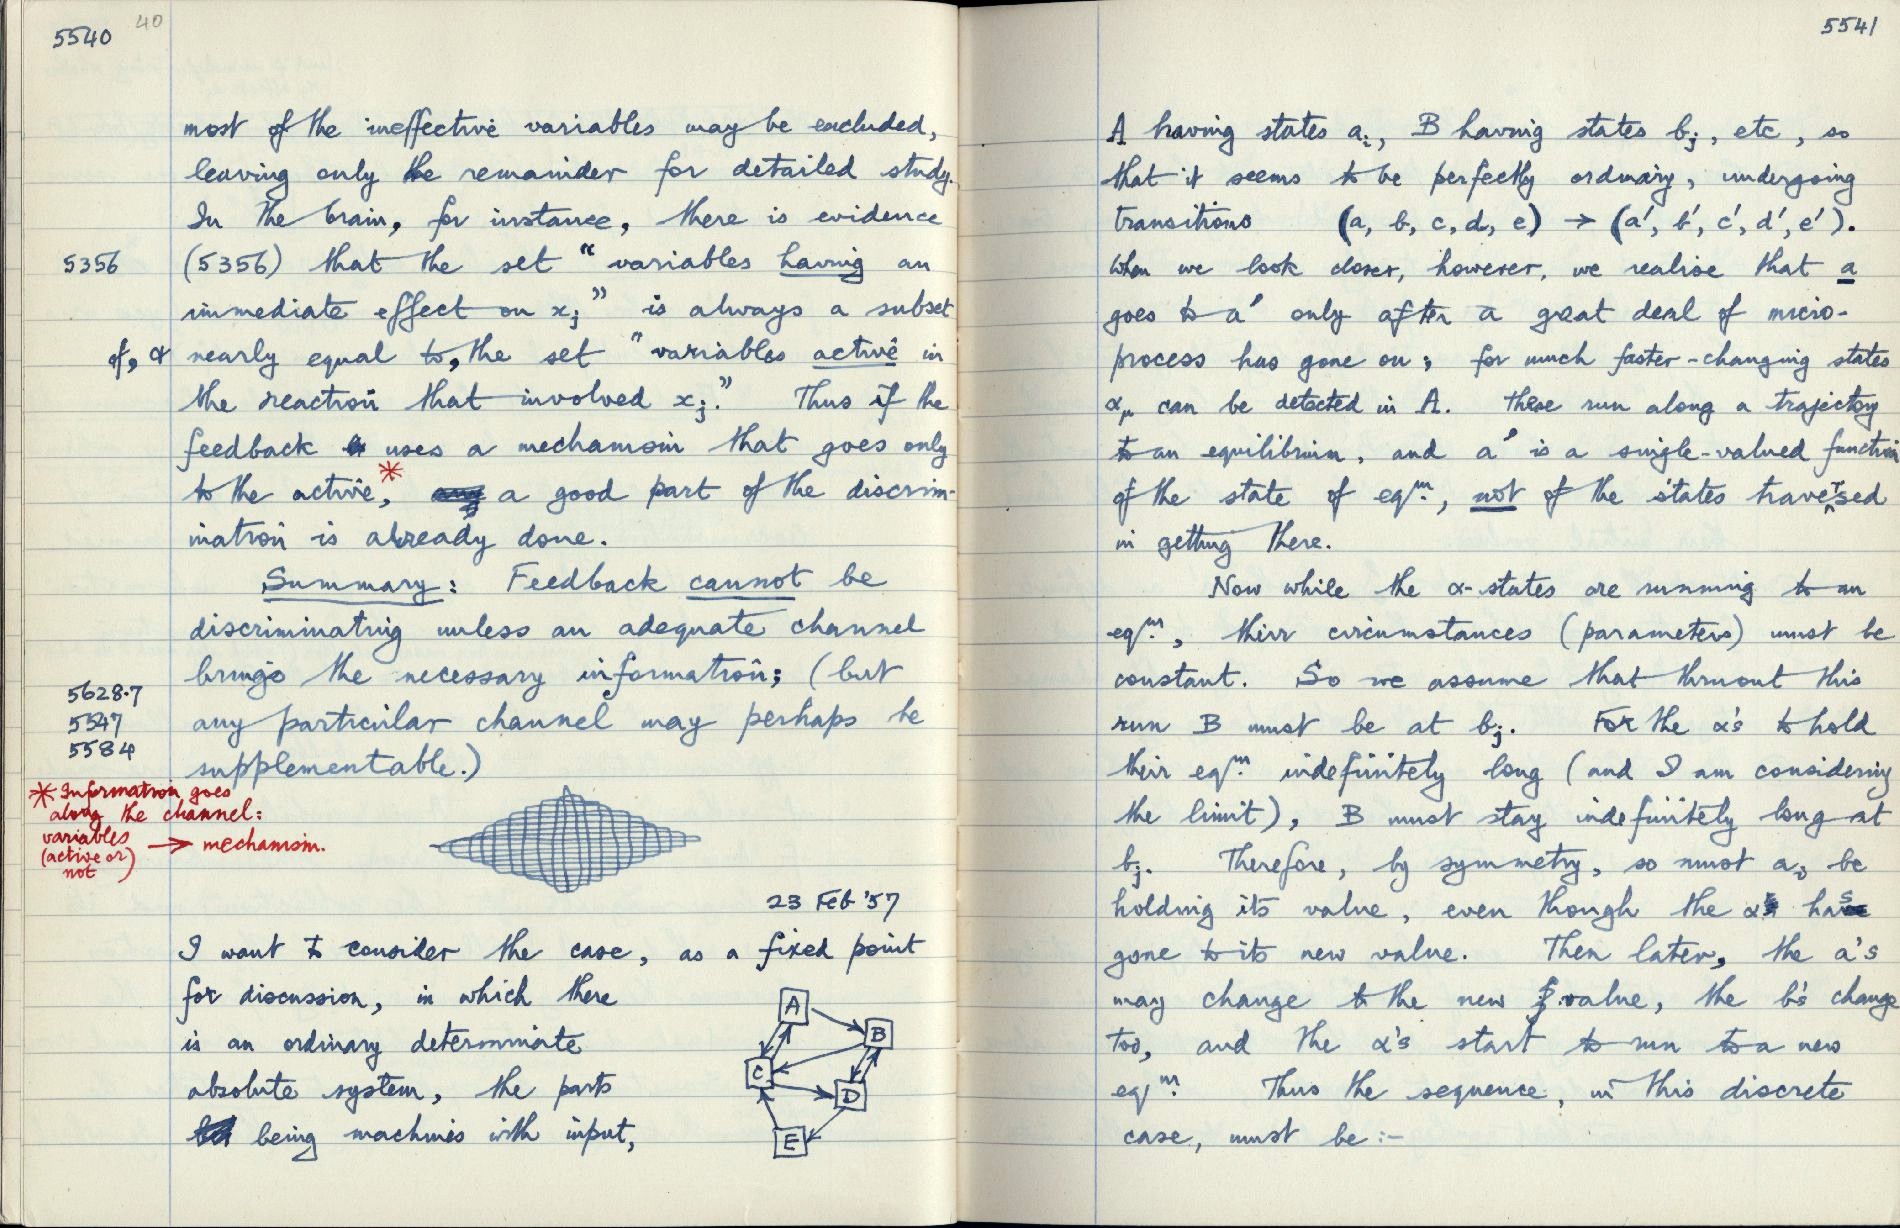 5540 40
most of the ineffective variables may be excluded,
leaving only the remainder for detailed study.
In the brain, for instance, there is evidence
5356 (5356) that the set "variables having an
immediate effect on xj" is always a subset
of, & nearly equal to, the set "variables active in
the reaction that involved xj." Thus if the
feedback uses a mechanism that goes only
to the active,* a good part of the discrim-
ination is already done.
Summary: Feedback cannot be
discriminating unless an adequate channel
brings the necessary information; (but
5628.7
5547 any particular channel may perhaps be
5584
supplementable.)
* Information goes
along the channel:
variables
(active or → mechanism.
not)
23 Feb '57
I want to consider the case, as a fixed point
for discussion, in which there
is an ordinary determinate
absolute system, the parts
being machines with input,
A
B
C
D
E
5541
A having states ai, B having states bj, etc, so
that it seems to be perfectly ordinary, undergoing
transitions (a, b, c, d, e) → (a', b', c', d', e').
When we look closer, however, we realise that a
goes to a' only after a great deal of micro-
process has gone on; for much faster-changing states
αμ can be detected in A. These run along a trajectory
to an equilibrium, and a' is a single-valued function
of the state of eqm., not of the states traversed
in getting there.
Now while the α-states are running to an
eqm., their circumstances (parameters) must be
constant. So we assume that thruout this
run B must be at bj. For the α's to hold
their eqm. indefinitely long (and I am considering
the limit), B must stay indefinitely long at
bj. Therefore, by symmetry, so must ai be
holding its value, even though the α has
gone to its new value. Then later, the a's
may change to the new value, the b's change
too, and the α's start to run to a new
eqm. Thus the sequence, in this discrete
case, must be :-